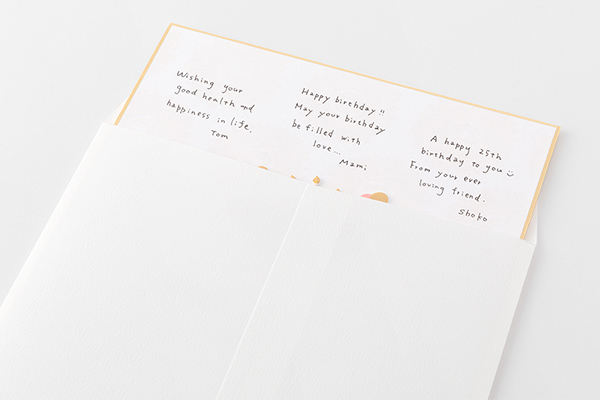 Wishing your
good health and
happiness in life.
Tom
Happy birthday!!
May your birthday
be filled with
love...
Mami
A happy 25th
birthday to you
From your ever
loving friend.
Shoko